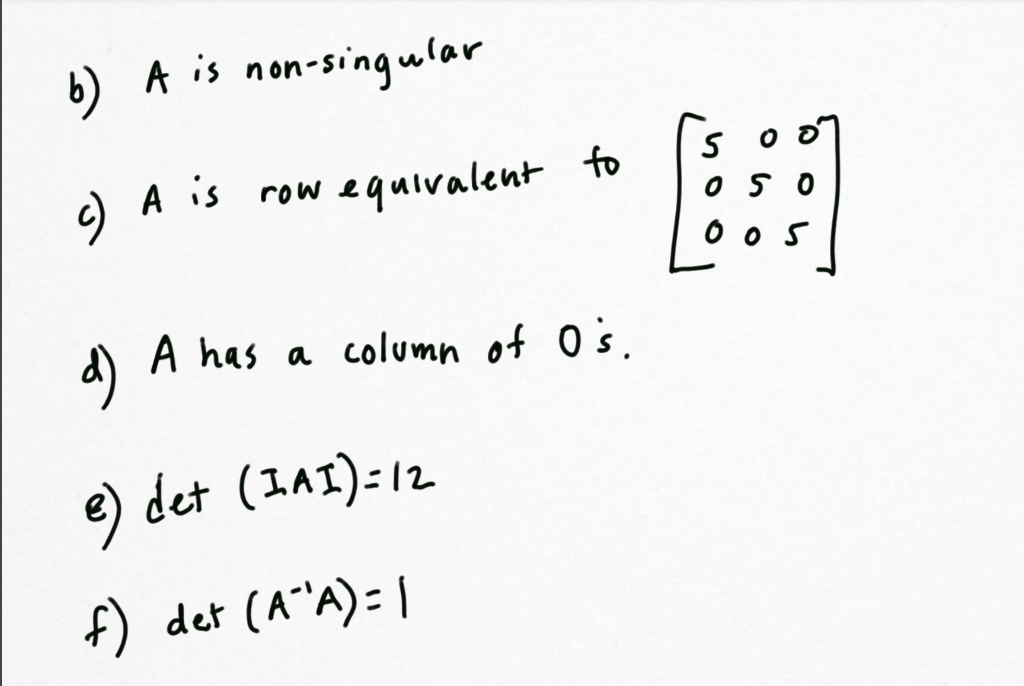 b) A is non-singular
c) A is row equivalent to
5 0 0
0 5 0
0 0 5
d) A has a column of 0's.
e) det (IAI)=12
f) det (A⁻¹A)=1